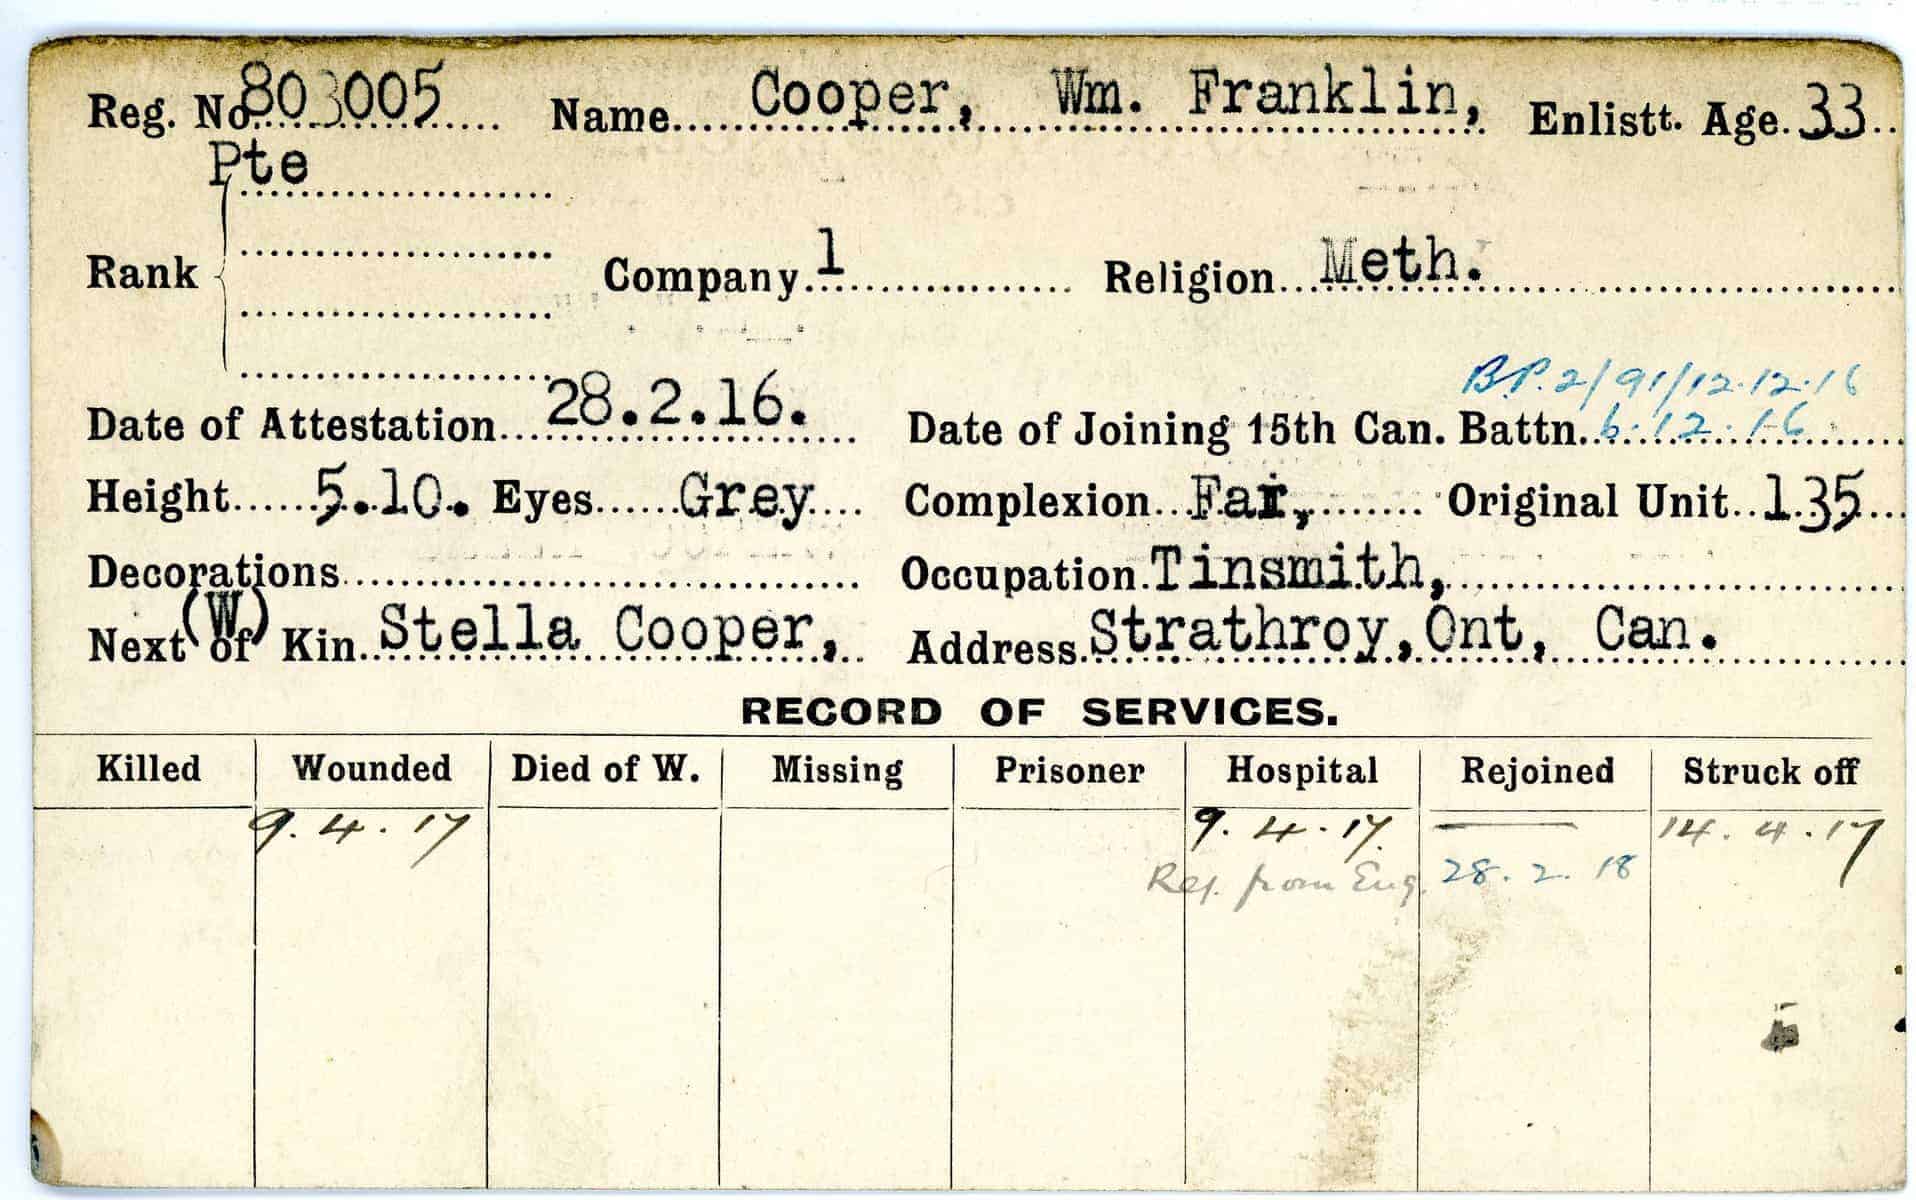 Reg. No. 803005 Name Cooper, Wm. Franklin, Enlistt. Age. 33
Pte
Rank Company 1 Religion Meth.
B.P. 2/91/12.12.16
Date of Attestation 28.2.16. Date of Joining 15th Can. Battn. 6.12.16
Height 5.10. Eyes Grey Complexion Fair, Original Unit 135
Decorations Occupation Tinsmith,
(W)
Next of Kin Stella Cooper, Address Strathroy, Ont, Can.
RECORD OF SERVICES.
Killed Wounded Died of W. Missing Prisoner Hospital Rejoined Struck off
9.4.17 9.4.17 — 14.4.17
from Eng. 28.2.18